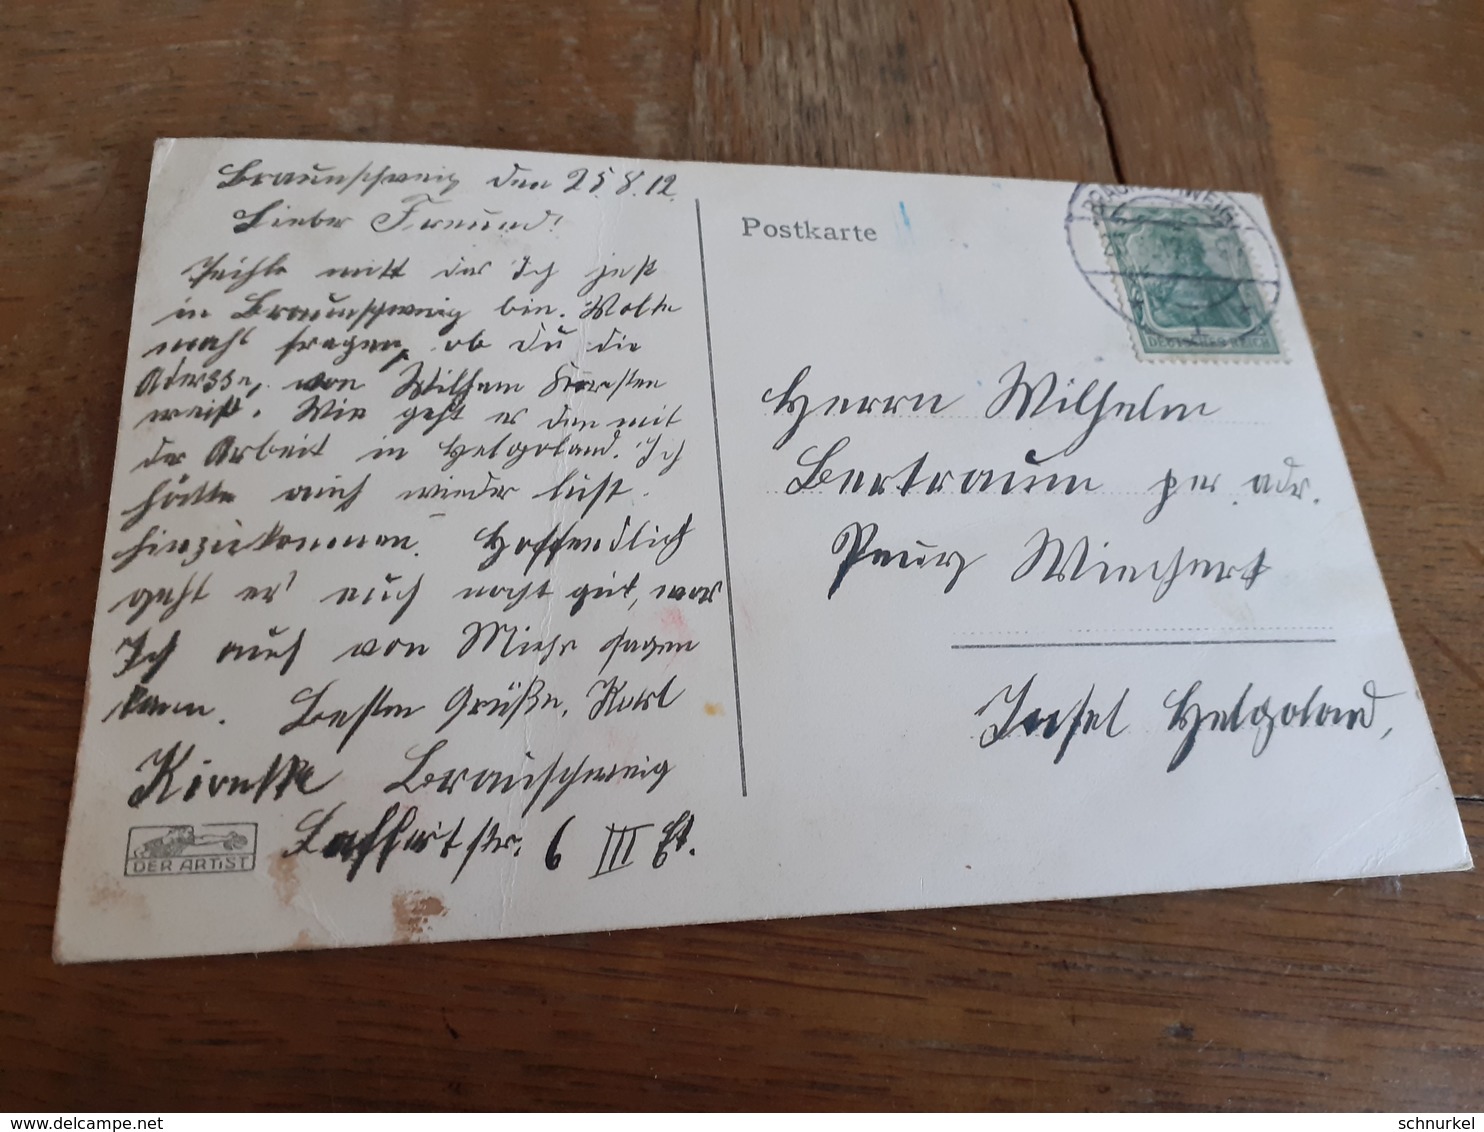 Braunschweig den 25.8.12.
Lieber Freund!
Teihle mitt das Ich jest
in Braunschweig bin. Wolte
mahl fragen, ob du die
Adersse, von Wilhem
weist. Wie geht es den mit
der Arbeit in Helgoland. Ich
hätte auch wieder lust
hinzukommen. Hoffendlich
geht es euch noch gut, was
Ich auch von Miehr sagen
kann. Besten Grüße, Karl
Braunschweig
str. 6 III Et.
DER ARTIST
Postkarte
BRAUNSCHWEIG
DEUTSCHES REICH
Herrn Wilhelm
Bertraum per adr.
Wiechert
Insel Helgoland,
schnurkel